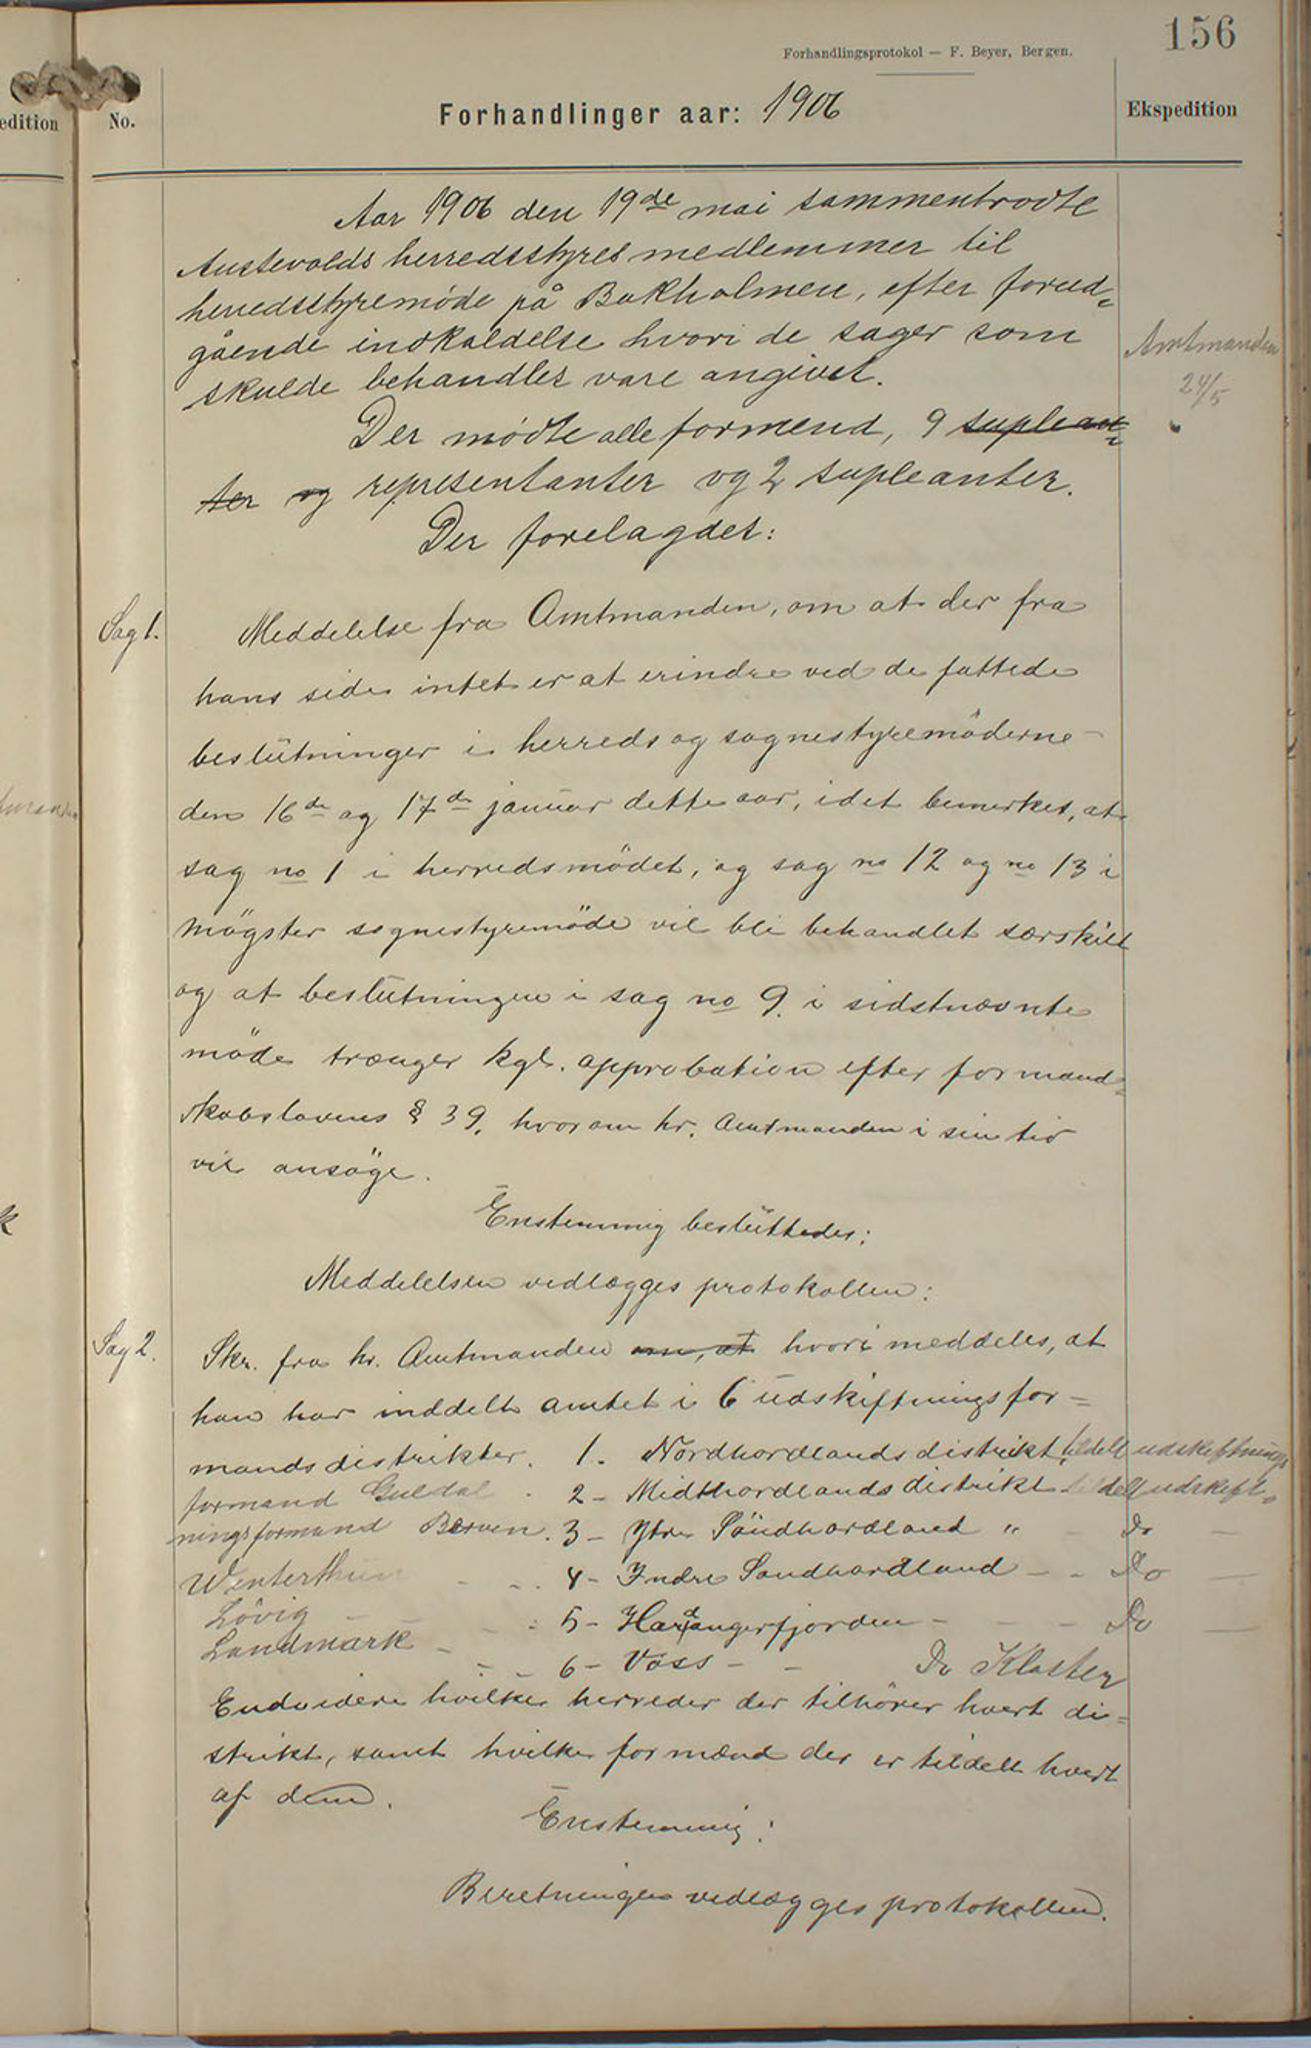 156
Forhandlingsprotokol — F. Beyer, Bergen.
edition
No.
Forhandlinger aar: 1906
Ekspedition
Aar 1906 den 19de mai sammentrodte
Austevolds herredsstyres medlemmer til
herredsstyremøde på Bakholmen, efter forud-
gående indkaldelse hvori de sager som
skulde behandles vare angivet.
Amtmanden
24/5
Der mødte alle formend, 9 suplean-
ter og representanter og 2 supleanter.
Der forelagdes:
Sag 1.
Meddelelse fra Amtmanden, om at der fra
hans side intet er at erindre ved de fattede
beslutninger i herreds og sognestyremöderne
den 16de og 17de januar dette aar, idet bemerkes, at
sag no 1 i herredsmödet, og sag no 12 og no 13 i
Mögster sognestyremöde vil bli behandlet særskilt
og at beslutningen i sag no 9. i sidstnævnte
möde trænger kgl. approbation efter formand-
skabslovens § 39, hvorom hr. Amtmanden i sin tid
vil ansöge.
Enstemmig besluttedes:
Meddelelsen vedlægges protokollen:
Sag 2.
Skr. fra hr. Amtmanden om, at hvori meddeles, at
han har inddelt amtet i 6 udskiftningsfor=
mandsdistrikter. 1. Nordhordlands distrikt tildelt udskiftnings
formand Guldal. 2 - Midthordlands distrikt tildelt udskift-
ningsformand Berven. 3 - Ytre Söndhordland " - Do -
Winterthun - - . 4 - Indre Söndhordland - - Do -
Lövig - - : 5 - Hardangerfjorden - - Do -
Landmark - - - 6 - Voss - - Do Kloster
Endvidere hvilke herreder der tilhörer hvert di=
strikt, samt hvilke formænd der er tildelt hvert
af dem.
Enstemmig:
Beretningen vedlægges protokollen.